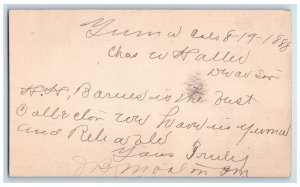 Yuma Colo 8-19-1888
Chas W Haller
Dear Sir
H.H. Barnes is the best
Collector we have in Yuma
and Reliable
Yours Truly